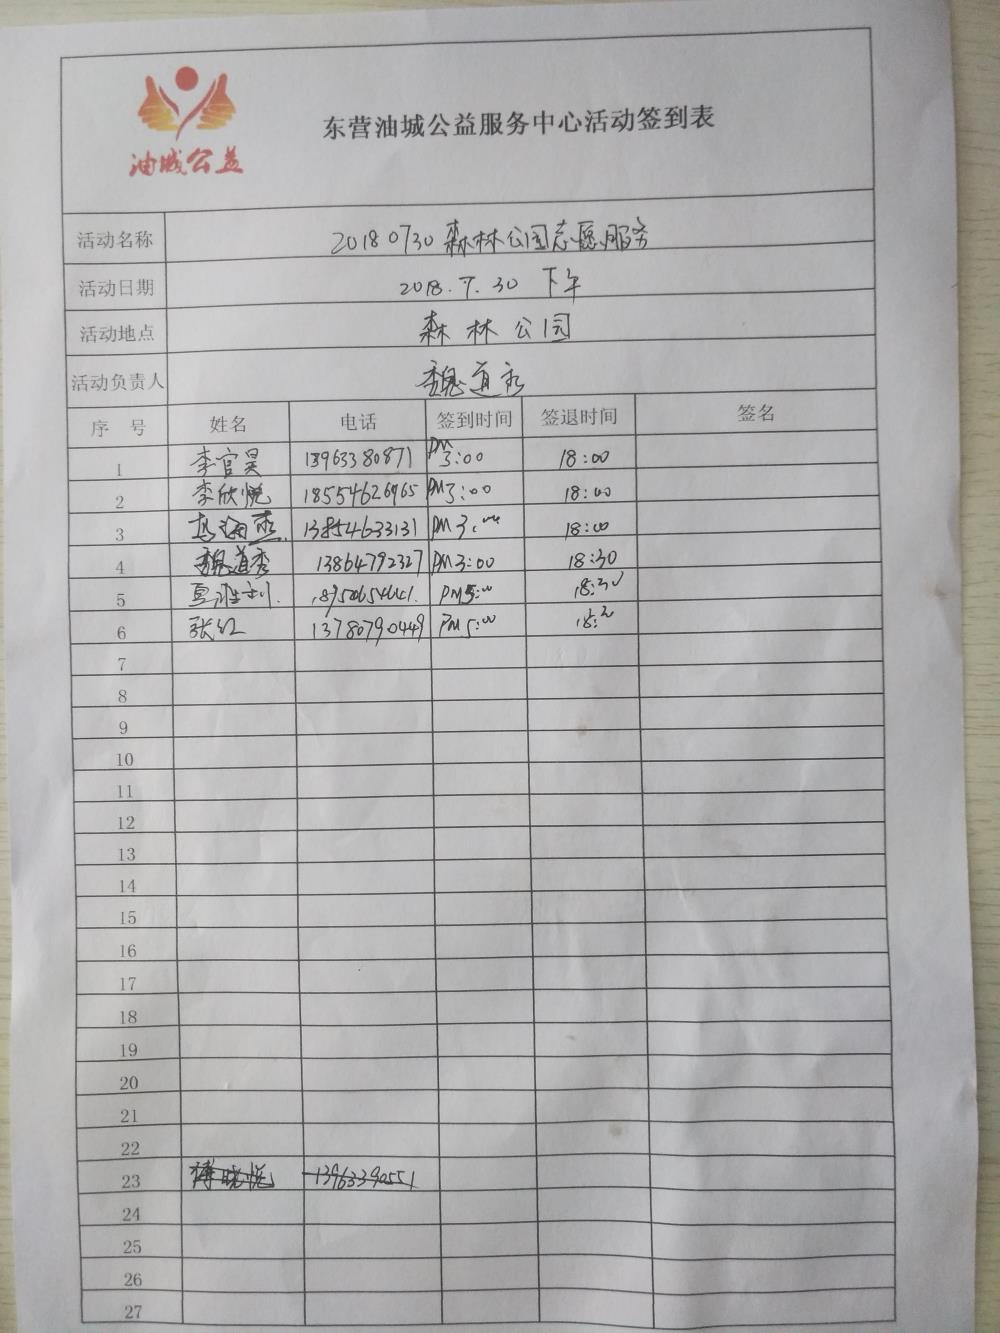 油城公益
东营油城公益服务中心活动签到表
活动名称 20180730森林公园志愿服务
活动日期 2018.7.30 下午
活动地点 森林公园
活动负责人 魏道秀
序号 姓名 电话 签到时间 签退时间 签名
1 李官昊 13963380871 PM3:00 18:00
2 李欣悦 18554626965 PM3:00 18:00
3 13854633131 PM3:00 18:00
4 魏道秀 13864792327 PM3:00 18:30
5 PM5:00 18:30
6 张红 13780790449 PM5:00 18:30
7
8
9
10
11
12
13
14
15
16
17
18
19
20
21
22
23 傅晓悦 13963390551
24
25
26
27